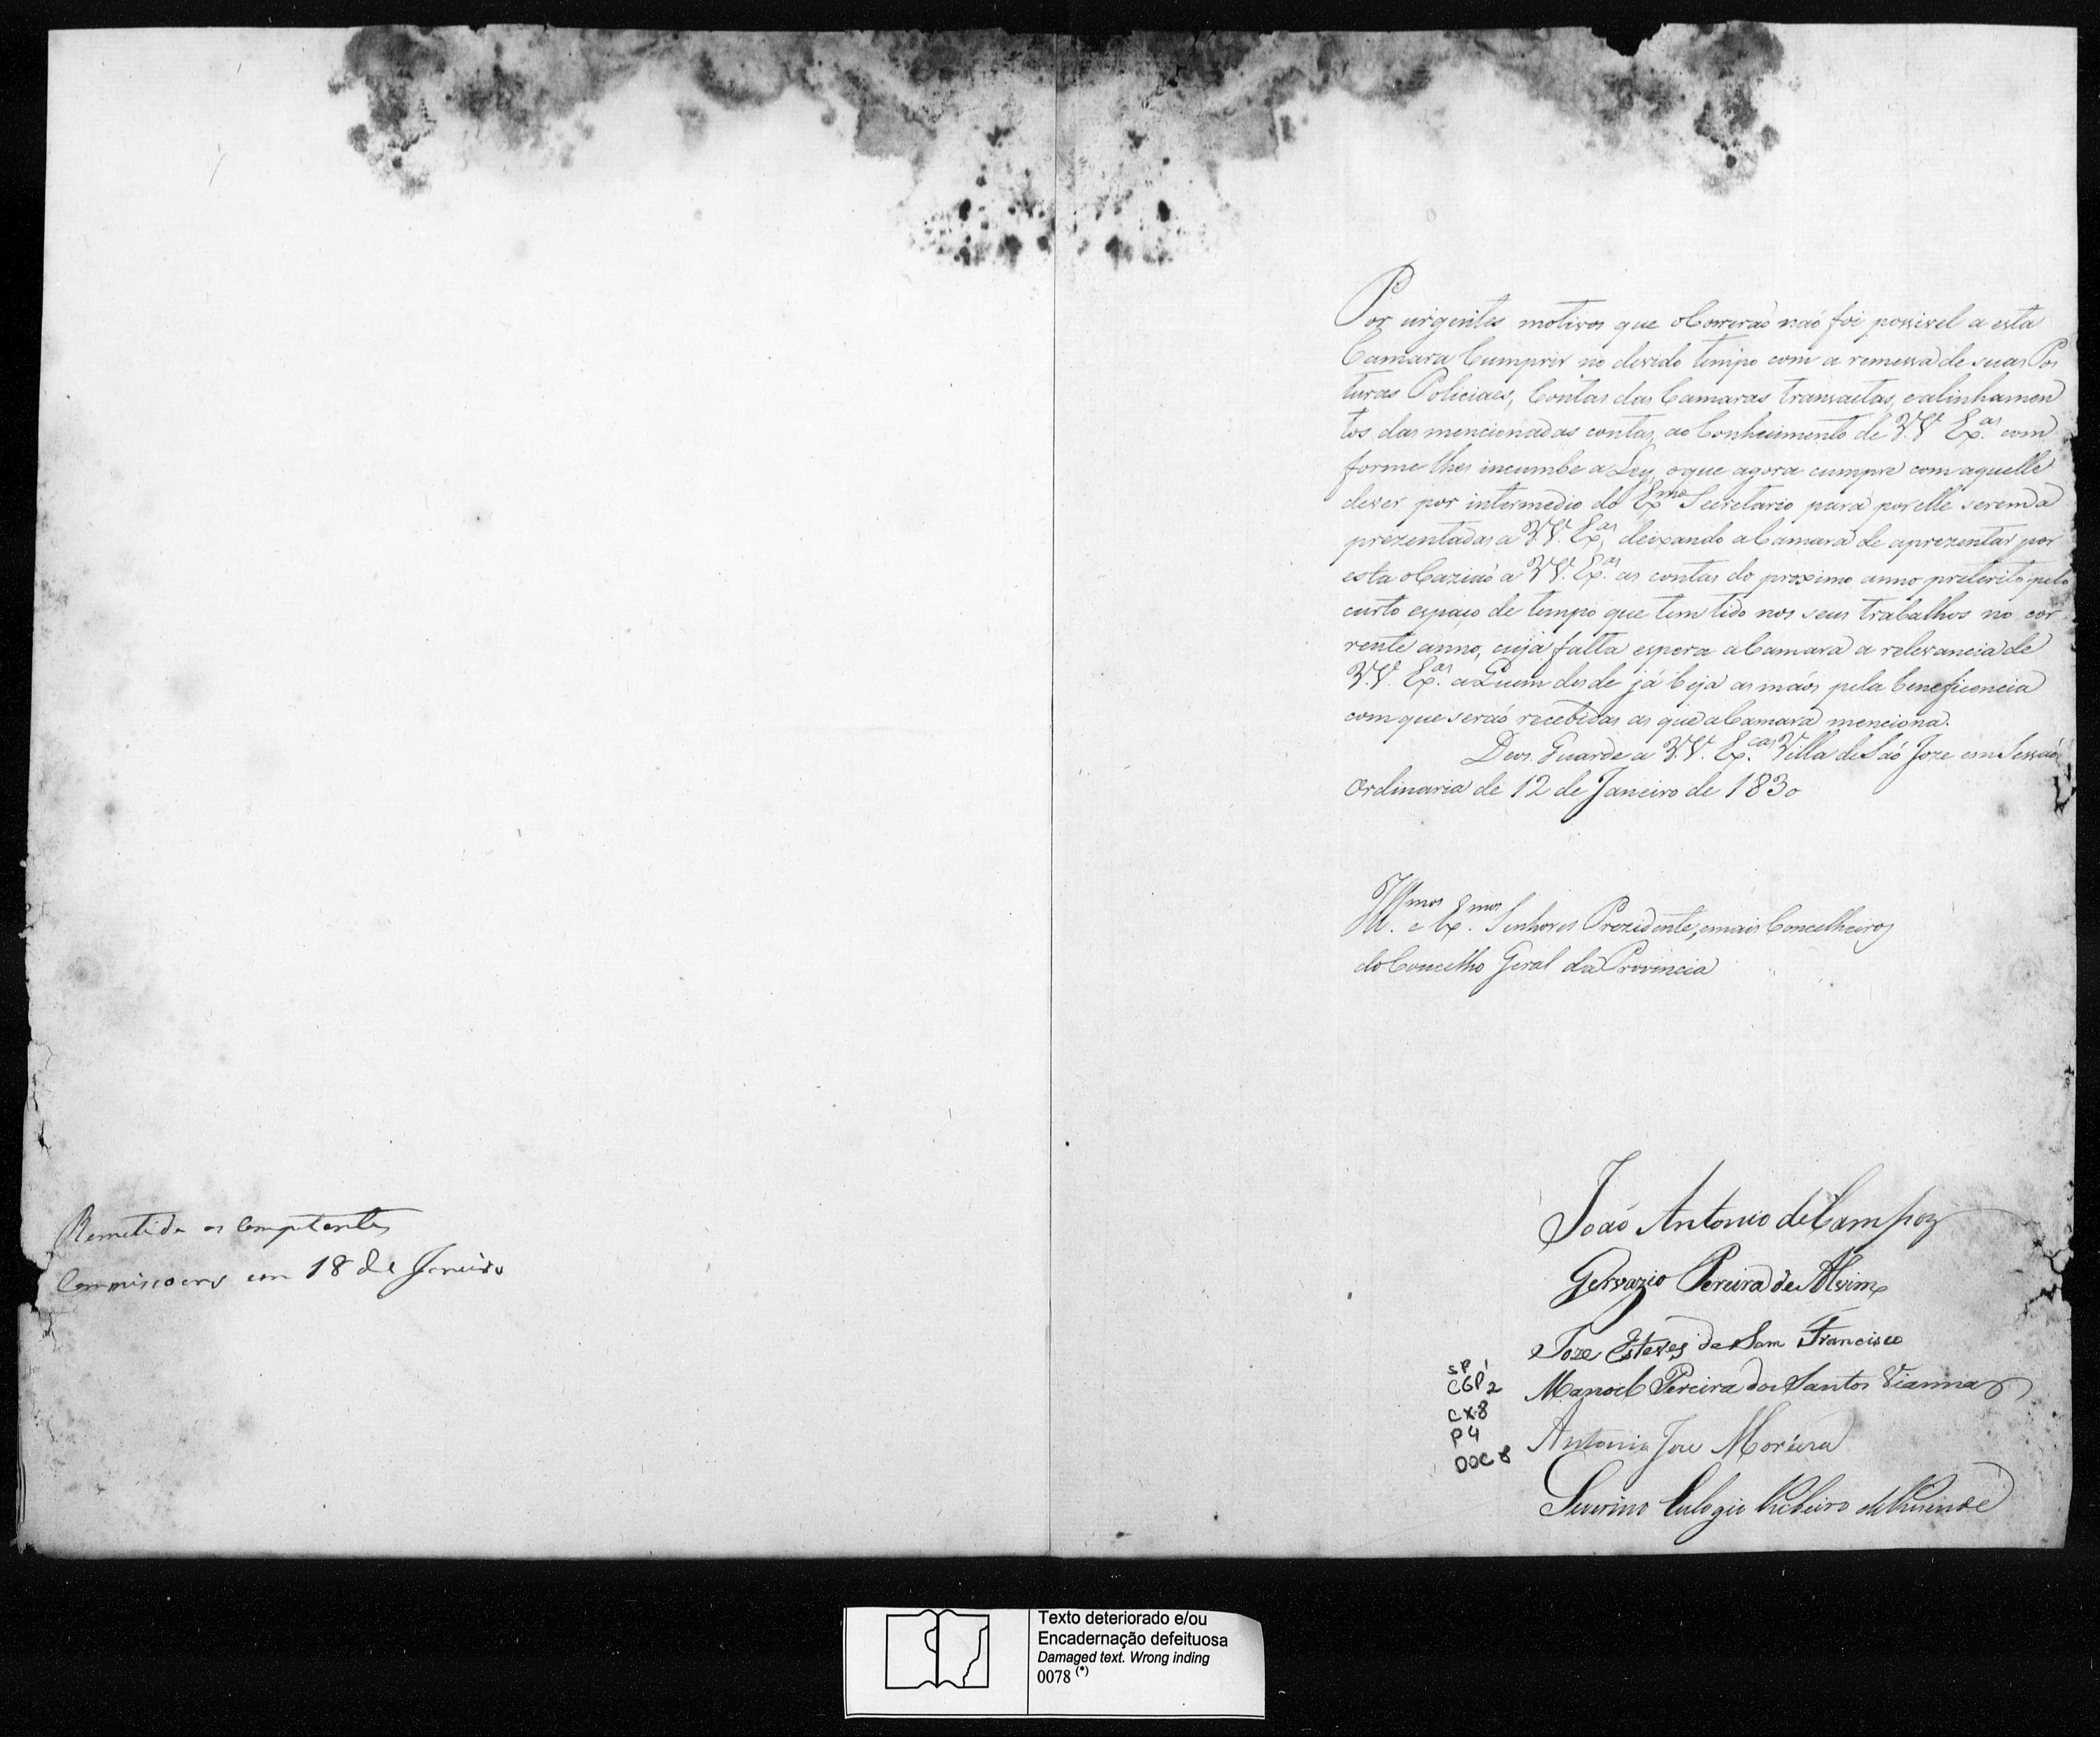 Remetida as Competentes
Commissoens em 18 de Janeiro
Por urgentes motivos que obCorrerão não foi possivel a esta
Camara Cumprir no devido tempo com a remessa de suas Pos
turas Policiaes, Contas das Camaras transactas, e alinhamen
tos das mencionadas contas, ao Conhecimento de V.V. Ex.as com
forme lhes incumbe a Ley, o que agora cumpre com aquelle
dever por intermedio do Exmo Secretario para por elle serem a
prezentadas a V.V. Ex.as, deixando a Camara de aprezentar por
esta obCazião a V.V. Ex.as as contas do proximo anno preterito pelo
curto espaço de tempo que tem tido nos seus trabalhos no cor
rente anno, cuja falta espera a Camara a relevancia de
V.V. Ex.as a Quem desde já beija as mãos pela beneficencia
com que serão recebidas as que a Camara menciona.
Deos Guarde a V.V. Ex.cas Villa de São Joze em Sessão
Ordinaria de 12 de Janeiro de 1830
Ill.mos e Ex.mos Senhores Prezidente, e mais Concelheiros
do Concelho Geral da Provincia
João Antonio de Campos
Gervazio Pereira de Alvim
Joze Esteves de Sam Francisco
Manoel Pereira dos Santos Vianna
Antonio Joze Moreira
Severino Eulogio Ribeiro de Rezende
SP 1
CGP 2
CX 8
P 4
DOC 8
Texto deteriorado e/ou
Encadernação defeituosa
Damaged text. Wrong inding
0078 (*)